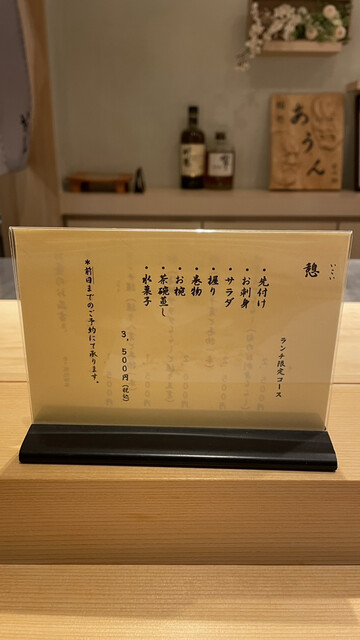 いこい
憩
ランチ限定コース
・先付け
・お刺身
・サラダ
・握り
・巻物
・お椀
・茶碗蒸し
・水菓子
3,500円(税込)
*前日までのご予約にて承ります。
あうん